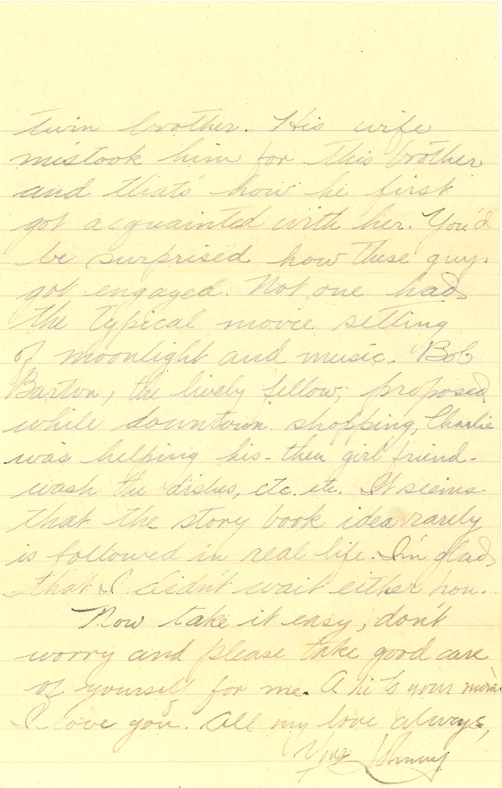 twin brother. His wife
mistook him for this brother
and that's how he first
got acquainted with her. You'd
be surprised how these guys
got engaged. Not one had
the typical movie setting
of moonlight and music. Bob
Barton, the lively fellow, proposed
while downtown shopping, Charlie
was helping his - then girl friend -
wash the dishes, etc. etc. It seems
that the story book idea rarely
is followed in real life. I'm glad
that I didn't wait either hon.
Now take it easy, don't
worry and please take good care
of yourself for me. A hi to your mom.
I love you. All my love always,
Your Johnny